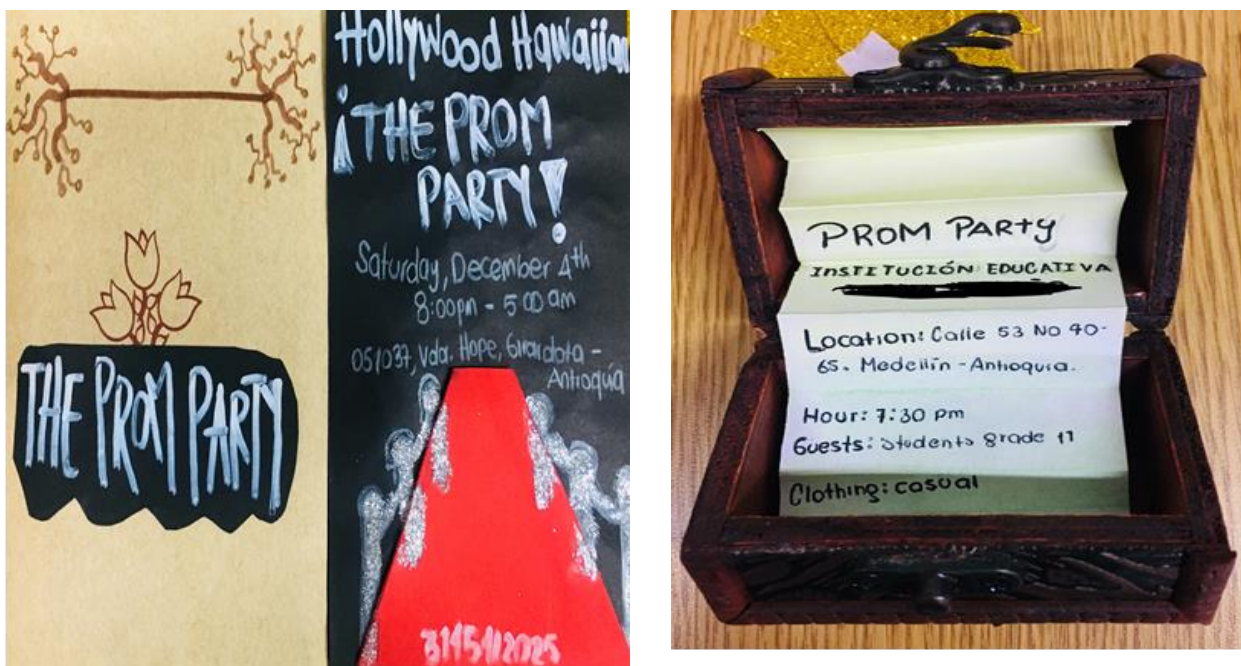 THE PROM PARTY
Hollywood Hawaiian
¡THE PROM
PARTY!
Saturday, December 4th
8:00pm - 5:00 am
051037, Vda. Hope, Girardota -
Antioquia
PROM PARTY
INSTITUCIÓN EDUCATIVA
Location: Calle 53 No 40-
65. Medellín - Antioquia.
Hour: 7:30 pm
Guests: Students grade 11
Clothing: casual